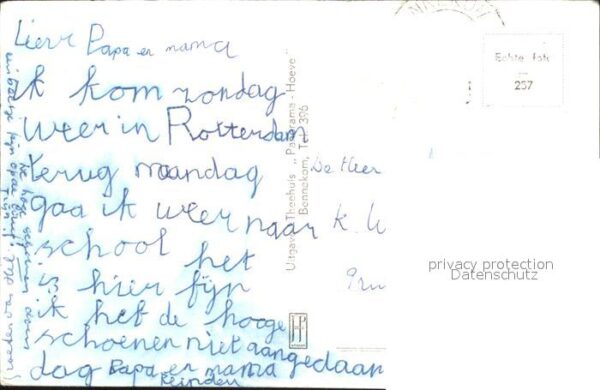 Lieve Papa en mama
ik kom zondag
weer in Rotterdam
terug maandag
gaa ik weer naar
school het
is hier fijn
ik heb de hooge
schoenen niet aangedaan
dag Papa en mama
Reindeu
Groeten van
de hoge schoenen
fijn
De Heer
k. W
Uitgave: Theehuis „Panorama - Hoeve"
Bennekom, Tel. 396
Echte Foto
257
privacy protection
Datenschutz